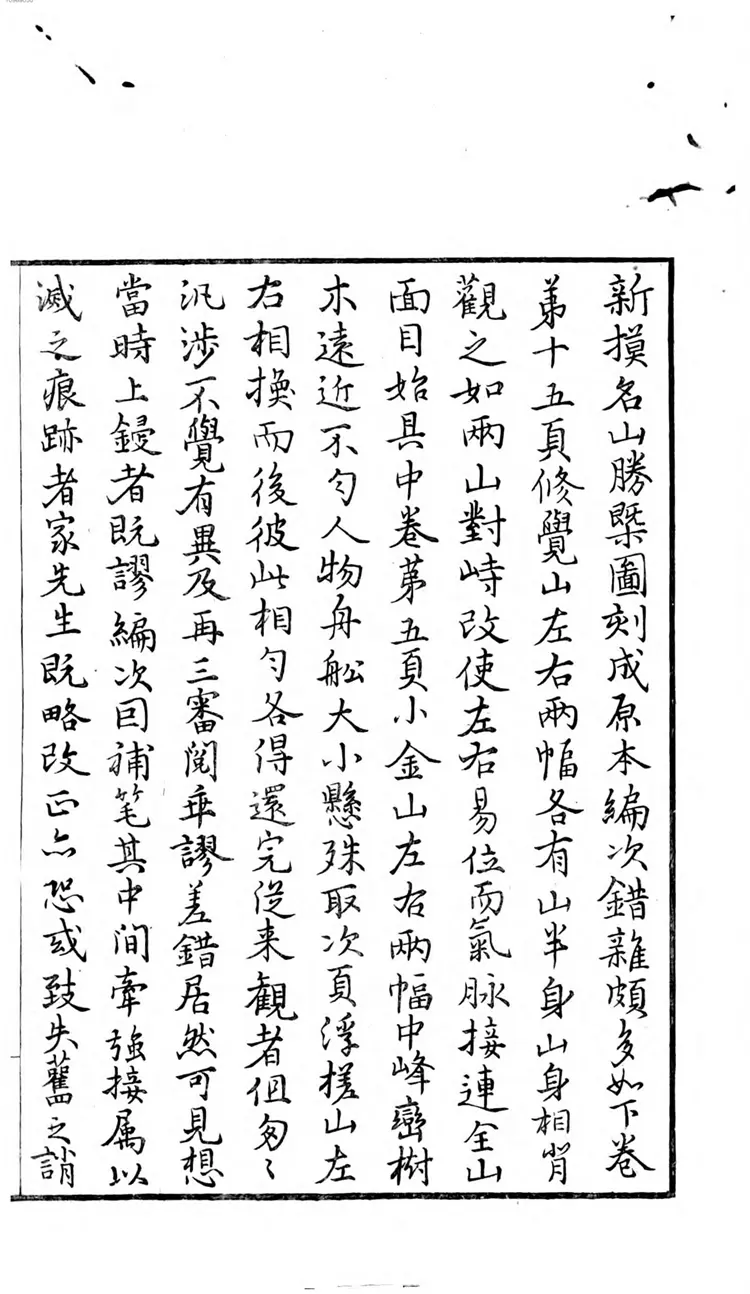 新摸名山勝槩圖刻成原本編次錯雜頗多如下卷
第十五頁修覺山左右兩幅各有山半身山身相背
觀之如兩山對峙改使左右易位而氣脉接連全山
面目始具中卷第五頁小金山左右兩幅中峰巒樹
木遠近不匀人物舟舩大小懸殊取次頁浮槎山左
右相換而後彼此相匀各得還完従来観者但匆〻
汎渉不覺有異及再三審閲乖謬差錯居然可見想
當時上鋟者既謬編次因補笔其中间牽強接属以
滅之痕跡者家先生既略改正亦恐或致失舊之誚